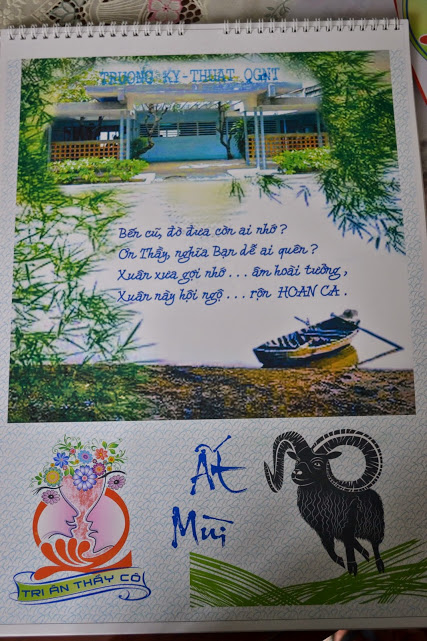 TRƯỜNG KỸ-THUẬT QGNT
Bến cũ, đò đưa còn ai nhớ?
Ơn Thầy, nghĩa Bạn dễ ai quên?
Xuân xưa gợi nhớ... âm hoài tưởng,
Xuân này hội ngộ... rộn HOAN CA.
Ất
Mùi
TRI ÂN THẦY CÔ